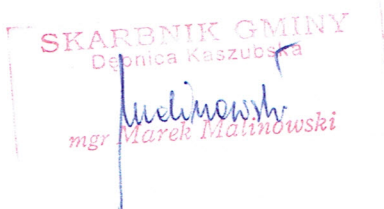 SKARBNIK GMINY
Dębnica Kaszubska
Malinowski
mgr Marek Malinowski